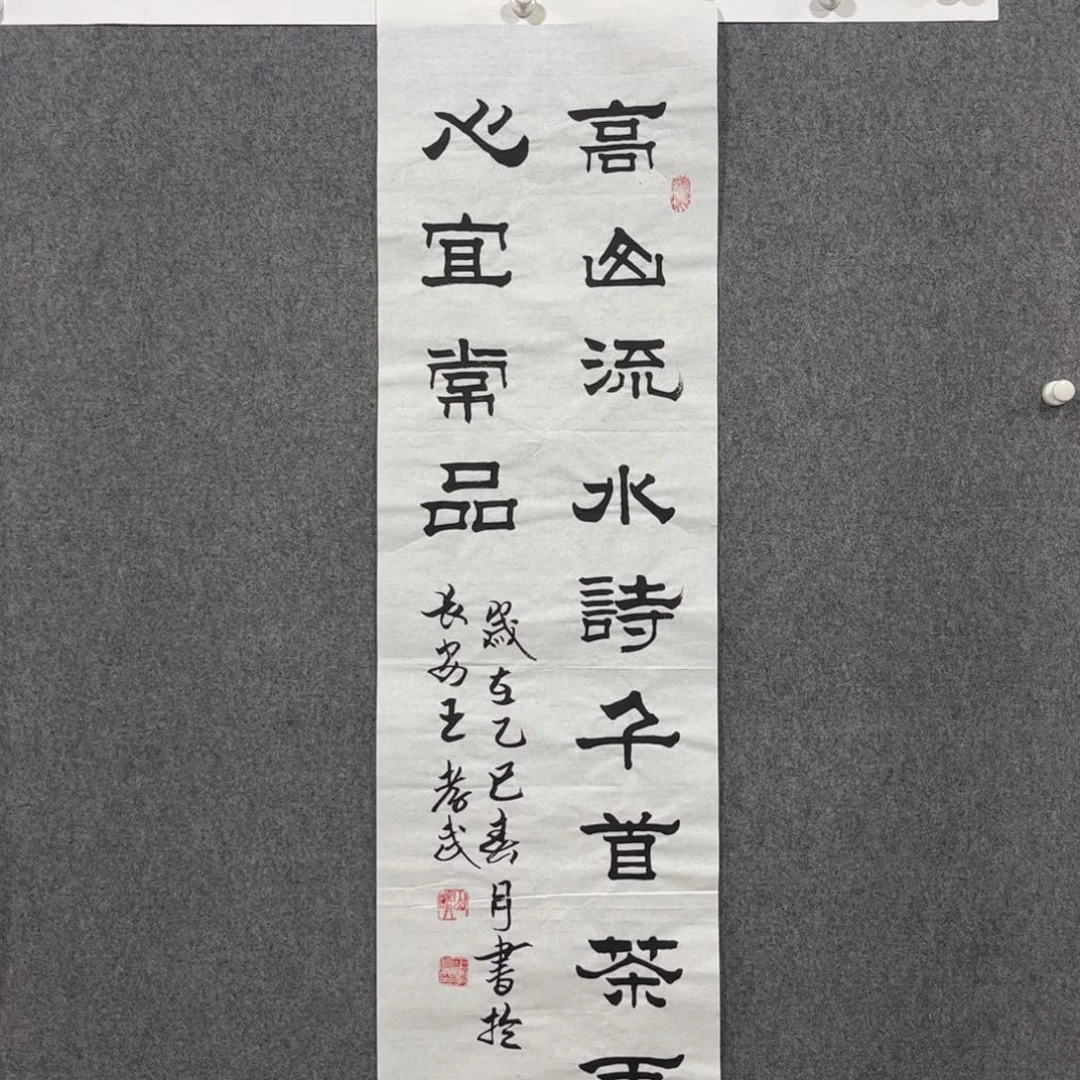 高山流水詩千首茶
心宜常品
歲在乙巳春月書於
長安王孝武